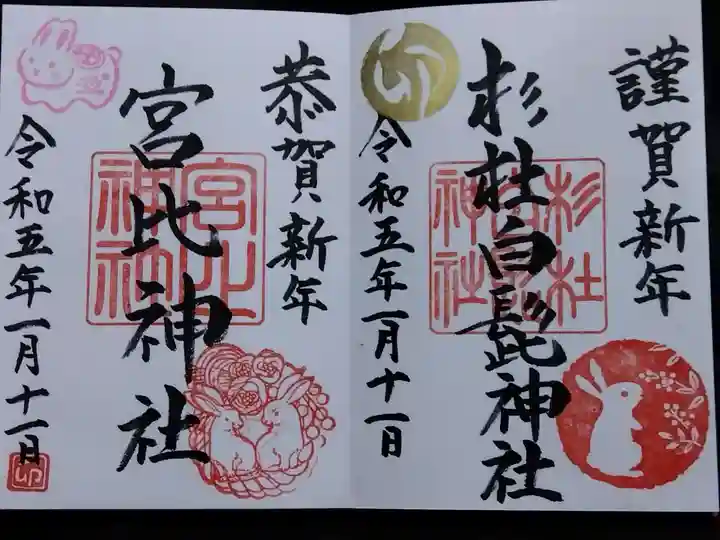 謹賀新年
杉杜白髭神社
令和五年一月十一日
恭賀新年
宮比神社
令和五年一月十一日
卯